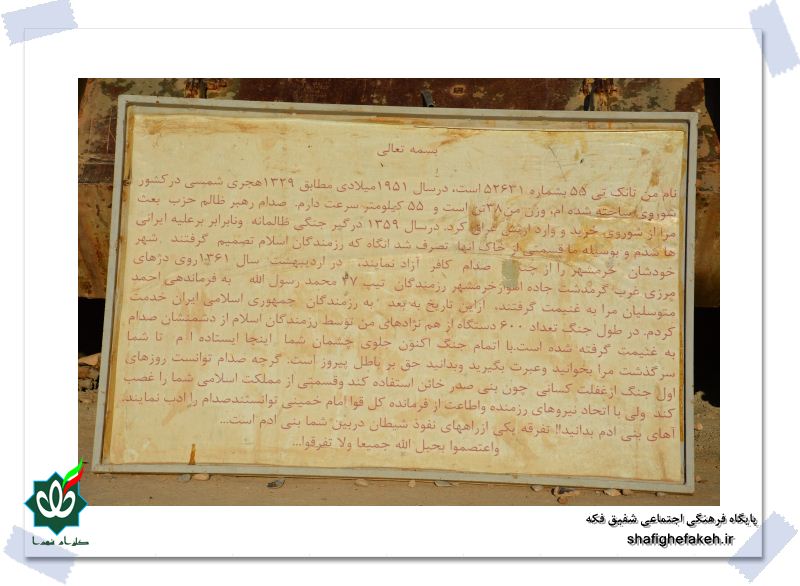 بسمه تعالی
نام من تانک تی ۵۵ بشماره ۵۲۶۳۱ است، درسال ۱۹۵۱میلادی مطابق ۱۳۲۹هجری شمسی در کشور
شوروی ساخته شده ام، وزن من۳۸تن است و ۵۵ کیلومتر سرعت دارم. صدام رهبر ظالم حزب بعث
مرا از شوروی خرید و وارد ارتش عراق کرد. درسال ۱۳۵۹ درگیر جنگی ظالمانه ونابرابر برعلیه ایرانی
ها شدم و بوسیله ما قسمتی از خاک انها تصرف شد انگاه که رزمندگان اسلام تصمیم گرفتند شهر
خودشان خرمشهر را از صدام کافر آزاد نمایند، در اردیبهشت سال ۱۳۶۱روی دژهای
مرزی غرب گرمدشت جاده اهوازخرمشهر رزمندگان تیپ ۲۷ محمد رسول الله به فرماندهی احمد
متوسلیان مرا به غنیمت گرفتند، ازاین تاریخ به بعد به رزمندگان جمهوری اسلامی ایران خدمت
کردم. در طول جنگ تعداد ۶۰۰ دستگاه از هم نژادهای من توسط رزمندگان اسلام از دشمنشان صدام
به غنیمت گرفته شده است.با اتمام جنگ اکنون جلوی چشمان شما اینجا ایستاده ا م تا شما
سرگذشت مرا بخوانید وعبرت بگیرید وبدانید حق بر باطل پیروز است. گرچه صدام توانست روزهای
اول جنگ ازغفلت کسانی چون بنی صدر خائن استفاده کند وقسمتی از مملکت اسلامی شما را غصب
کند ولی با اتحاد نیروهای رزمنده واطاعت از فرمانده کل قوا امام خمینی توانستندصدام را ادب نمایند.
آهای بنی ادم بدانید!! تفرقه یکی ازراههای نفوذ شیطان دربین شما بنی ادم است...
واعتصموا بحبل الله جمیعا ولا تفرقوا...
پایگاه فرهنگی اجتماعی شفیق فکه
shafighefakeh.ir